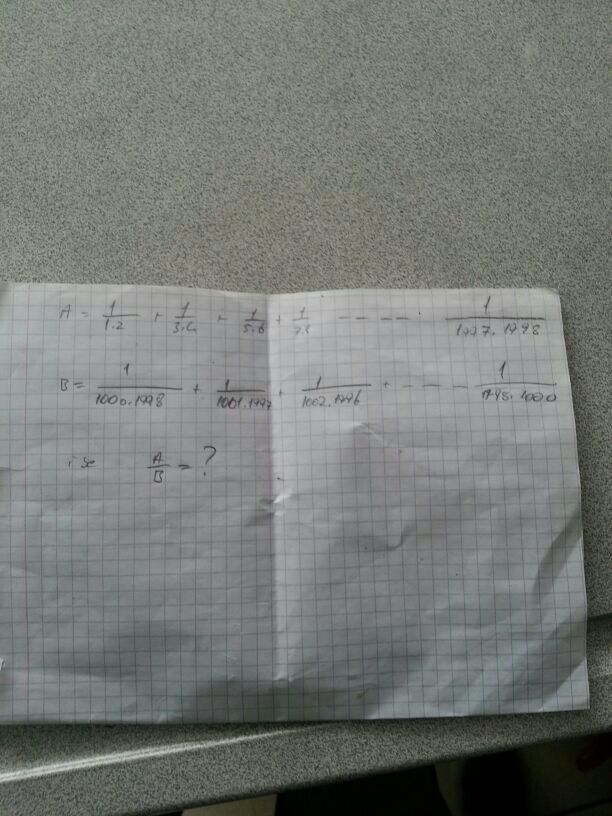 A = 1/1.2 + 1/3.4 + 1/5.6 + 1/7.8 ---- 1/1997.1998
B = 1/1000.1998 + 1/1001.1997 + 1/1002.1996 + --- 1/1998.1000
ise A/B = ?